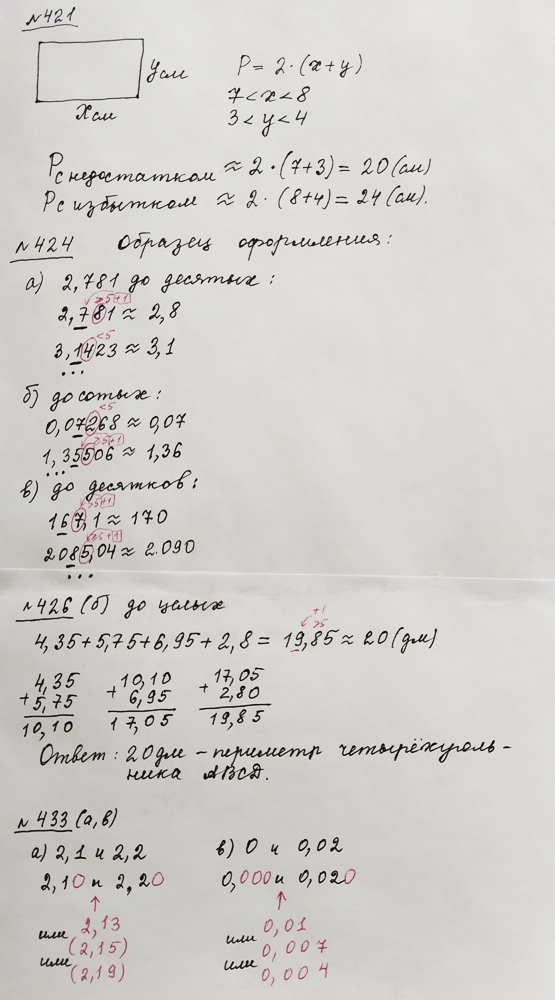 №421
P = 2·(x+y)
7<x<8
3<y<4
yсм
xсм
Pс недостатком ≈ 2·(7+3) = 20 (см)
Pс избытком ≈ 2·(8+4) = 24 (см).
№424 Образец оформления:
а) 2,781 до десятых:
≥5 +1
2,781 ≈ 2,8
<5
3,1423 ≈ 3,1
...
б) до сотых:
<5
0,07268 ≈ 0,07
≥5 +1
1,35506 ≈ 1,36
...
в) до десятков:
≥5 +1
167,1 ≈ 170
≥5 +1
2085,04 ≈ 2.090
...
№426 (б) до целых
+1
≥5
4,35+5,75+6,95+2,8 = 19,85 ≈ 20 (дм)
4,35 10,10 17,05
+5,75 +6,95 +2,80
10,10 17,05 19,85
Ответ: 20дм – периметр четырёхуголь-
ника ABCD.
№433 (а,в)
а) 2,1 и 2,2 в) 0 и 0,02
2,10 и 2,20 0,000 и 0,020
↑ ↑
2,13 0,01
или (2,15) или 0,007
или (2,19) или 0,004